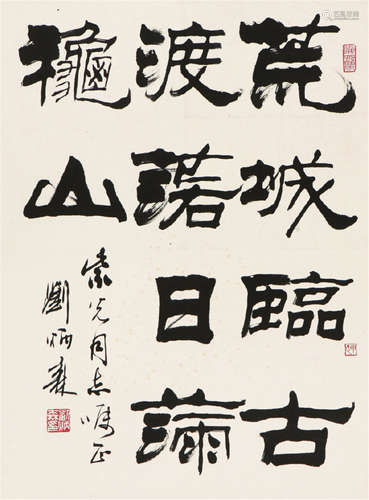 荒城臨古
渡落日滿
龝山
紫光同志嘱正
劉炳森